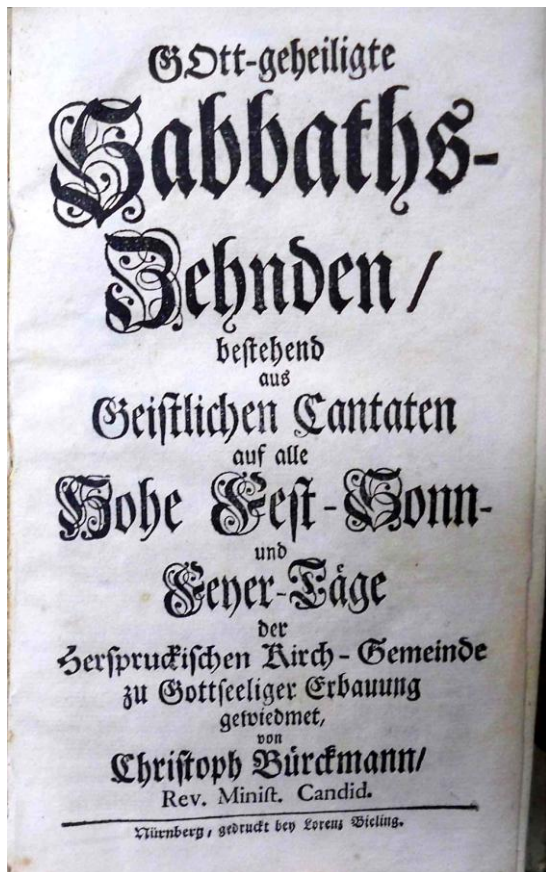 GOtt-geheiligte
Sabbaths-
Zehnden/
bestehend
aus
Geistlichen Cantaten
auf alle
Hohe Fest-Sonn-
und
Feyer-Täge
der
Herspruckischen Kirch-Gemeinde
zu Gottseeliger Erbauung
gewiedmet,
von
Christoph Bürckmann/
Rev. Minist. Candid.
Nürnberg, gedruckt bey Lorenz Bieling.